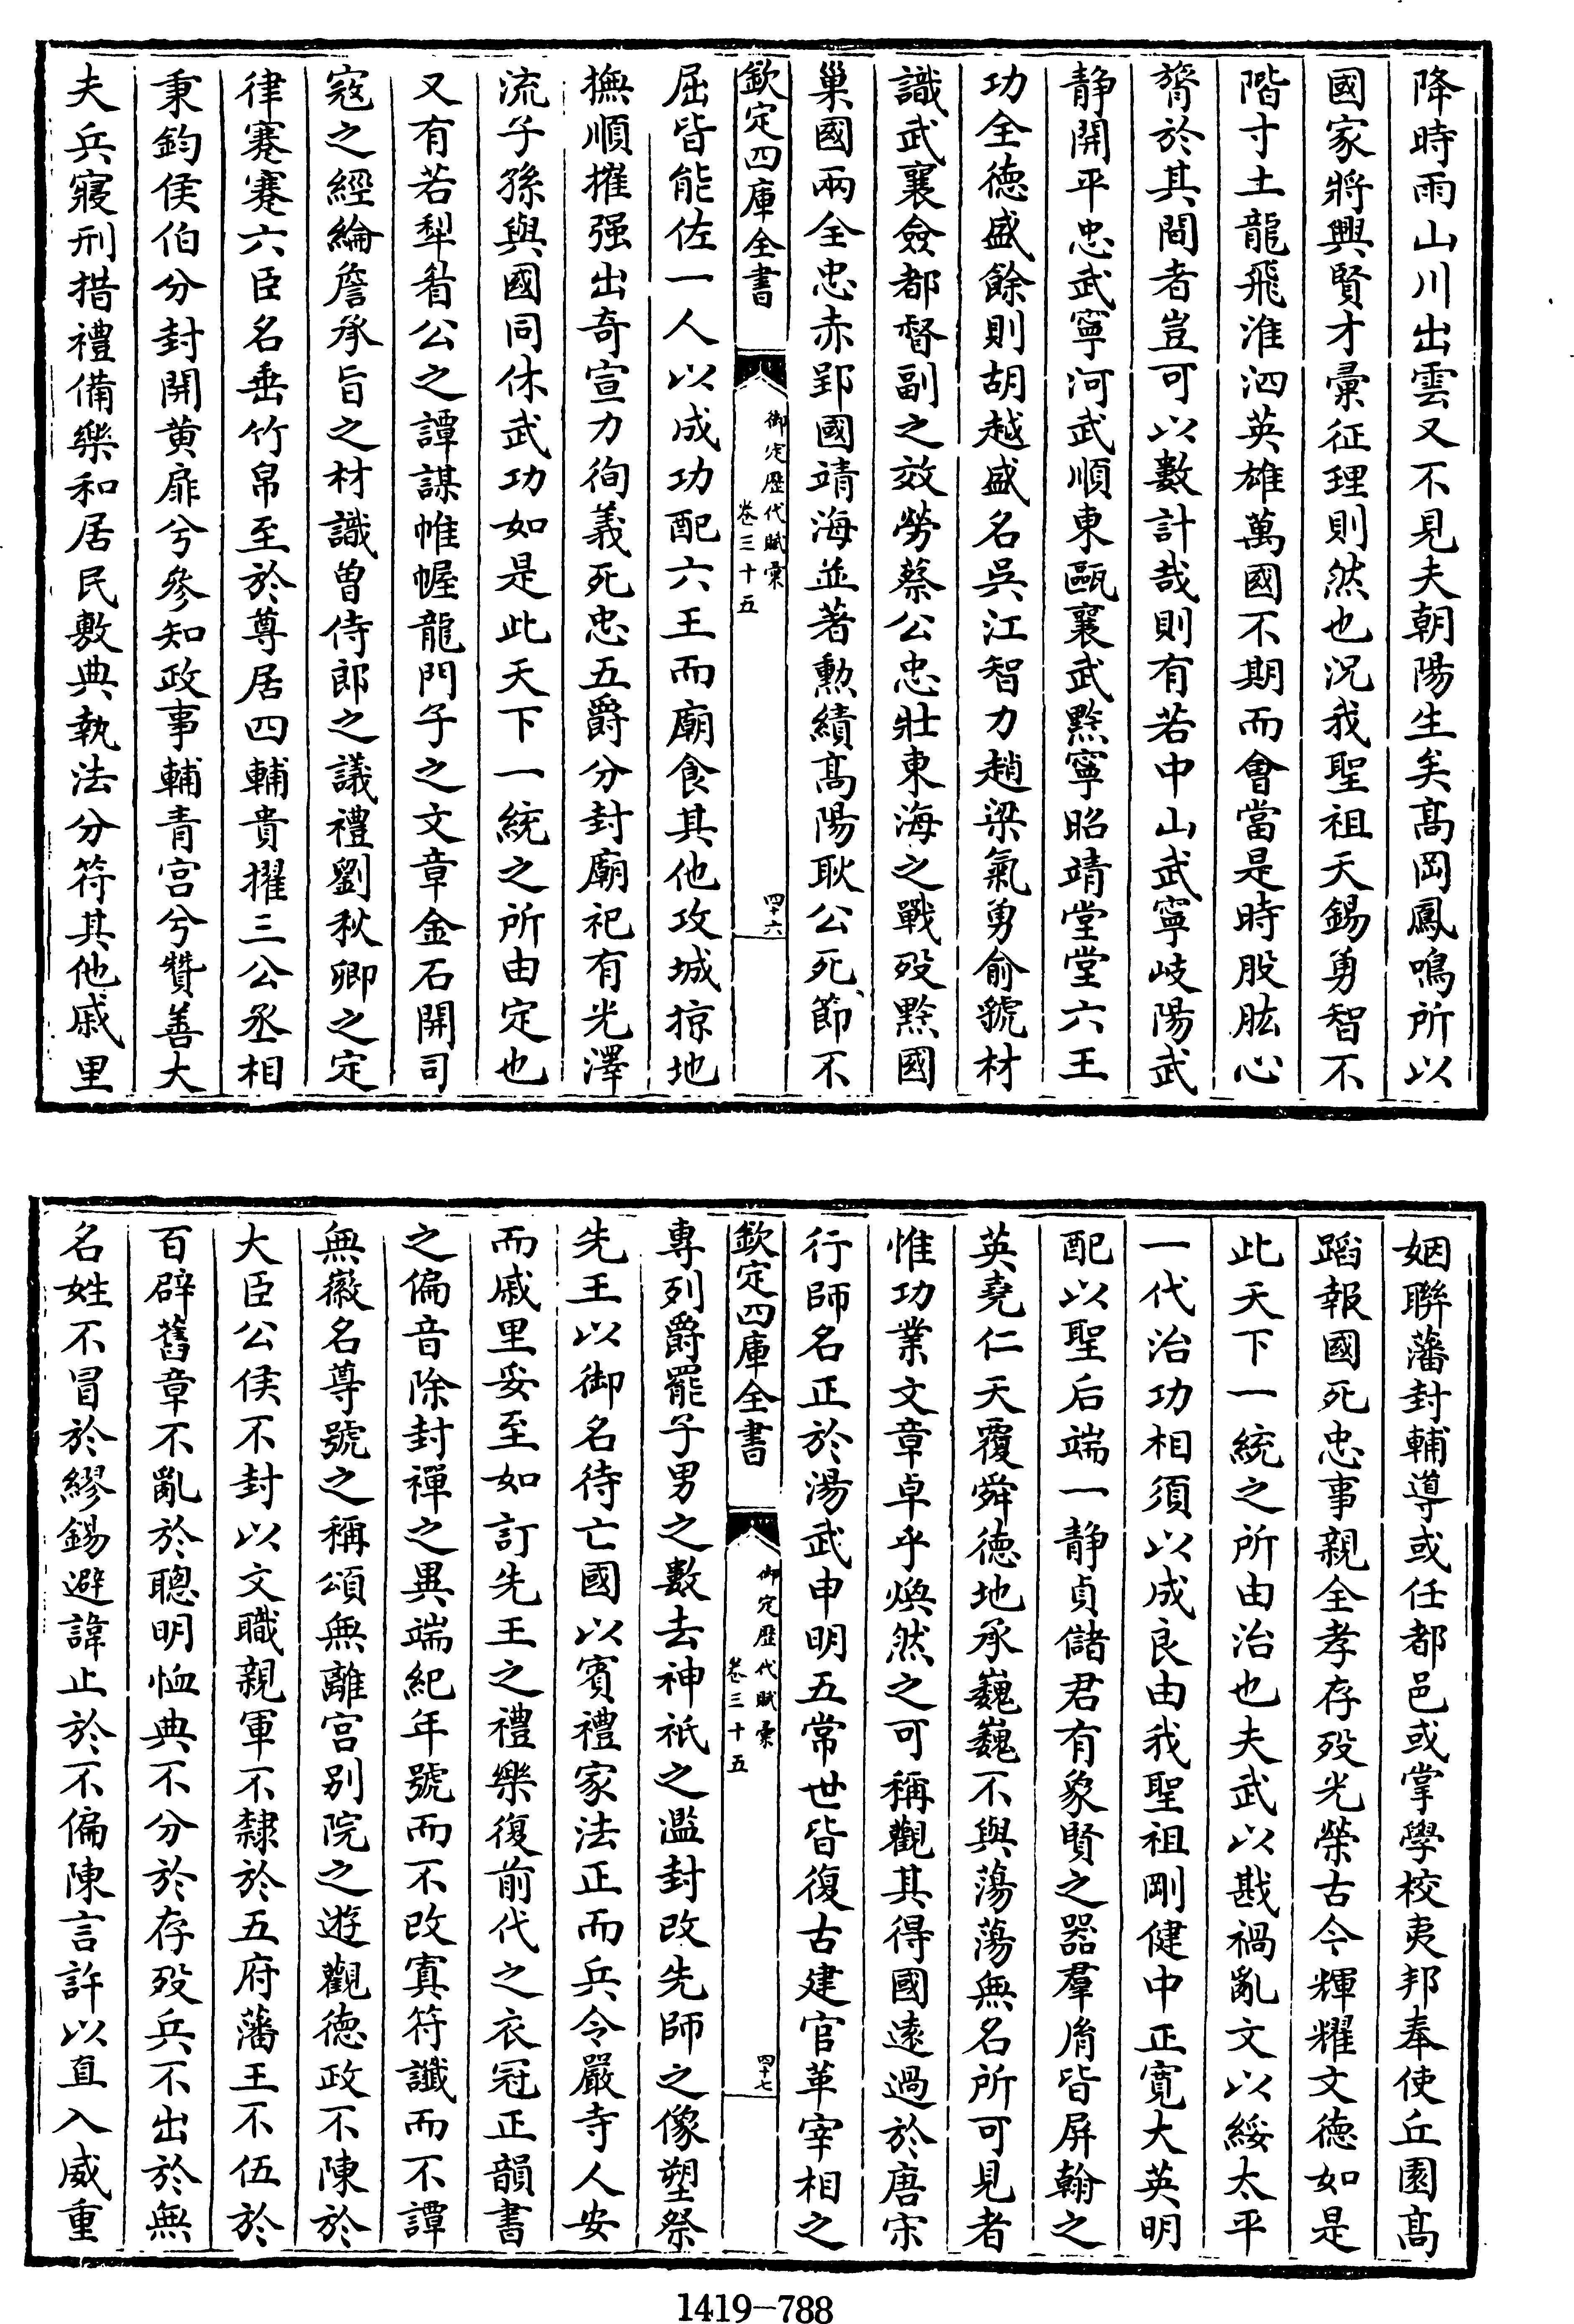 降時雨山川出雲又不見夫朝陽生矣髙岡鳳鳴所以
國家將興賢才彚征理則然也况我聖祖天錫勇智不
階寸土龍飛淮泗英雄萬國不期而會當是時股肱心
膂於其間者豈可以數計哉則有若中山武寧岐陽武
静開平忠武寧河武順東甌襄武黔寧昭靖堂堂六王
功全徳盛餘則胡越盛名吳江智力趙梁氣勇俞虢材
識武襄僉都督副之效勞蔡公忠壯東海之戰殁黔國
巢國兩全忠赤郢國靖海並著勲績髙陽耿公死節不
欽定四庫全書
御定歴代賦彙
卷三十五
四十六
屈皆能佐一人以成功配六王而廟食其他攻城掠地
撫順摧强出竒宣力徇義死忠五爵分封廟祀有光澤
流子孫與國同休武功如是此天下一統之所由定也
又有若犁眉公之譚謀帷幄龍門子之文章金石開司
寇之經綸詹承旨之材識曾侍郎之議禮劉秋卿之定
律蹇蹇六臣名垂竹帛至於尊居四輔貴擢三公丞相
秉鈞侯伯分封開黄扉兮參知政事輔青宫兮贊善大
夫兵寢刑措禮備樂和居民敷典執法分符其他戚里
姻聯藩封輔導或任都邑或掌學校夷邦奉使丘園髙
蹈報國死忠事親全孝存殁光榮古今輝耀文徳如是
此天下一統之所由治也夫武以戡禍亂文以綏太平
一代治功相須以成良由我聖祖剛健中正寛大英明
配以聖后端一静貞儲君有象賢之器羣胤皆屏翰之
英堯仁天覆舜徳地承巍巍不與蕩蕩無名所可見者
惟功業文章卓乎煥然之可稱觀其得國逺過於唐宋
行師名正於湯武申明五常世皆復古建官革宰相之
欽定四庫全書
御定歴代賦彙
卷三十五
四十七
專列爵罷子男之數去神祇之濫封改先師之像塑祭
先王以御名待亡國以賓禮家法正而兵令嚴寺人安
而戚里妥至如訂先王之禮樂復前代之衣冠正韻書
之偏音除封禪之異端紀年號而不改寘符讖而不譚
無徽名尊號之稱頌無離宫别院之遊觀徳政不陳於
大臣公侯不封以文職親軍不隸於五府藩王不伍於
百辟舊章不亂於聰明恤典不分於存殁兵不出於無
名姓不冒於繆錫避諱止於不偏陳言許以直入威重
1419—788